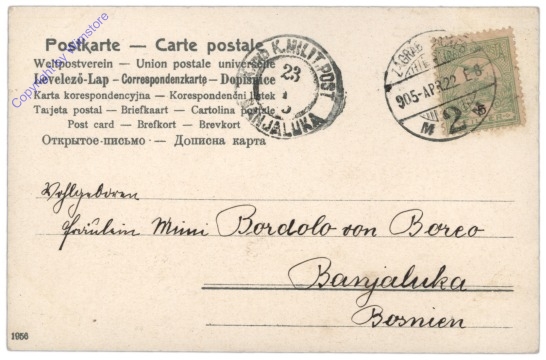 Postkarte — Carte postale
Weltpostverein — Union postale universelle
Levelező-Lap — Correspondenzkarte — Dopisnice
Karta korespondencyjna — Korespondenční lístek
Tarjeta postal — Briefkaart — Cartolina postale
Post card — Brefkort — Brevkort
Открытое-письмо — Дописна карта
K. MILIT. POST
23
BANJALUKA
ZAGRAB
905-APR 22
M 2
Wohlgeboren
Fräulein Mimi Bordolo von Boreo
Banjaluka
Bosnien
1956
Copyright by